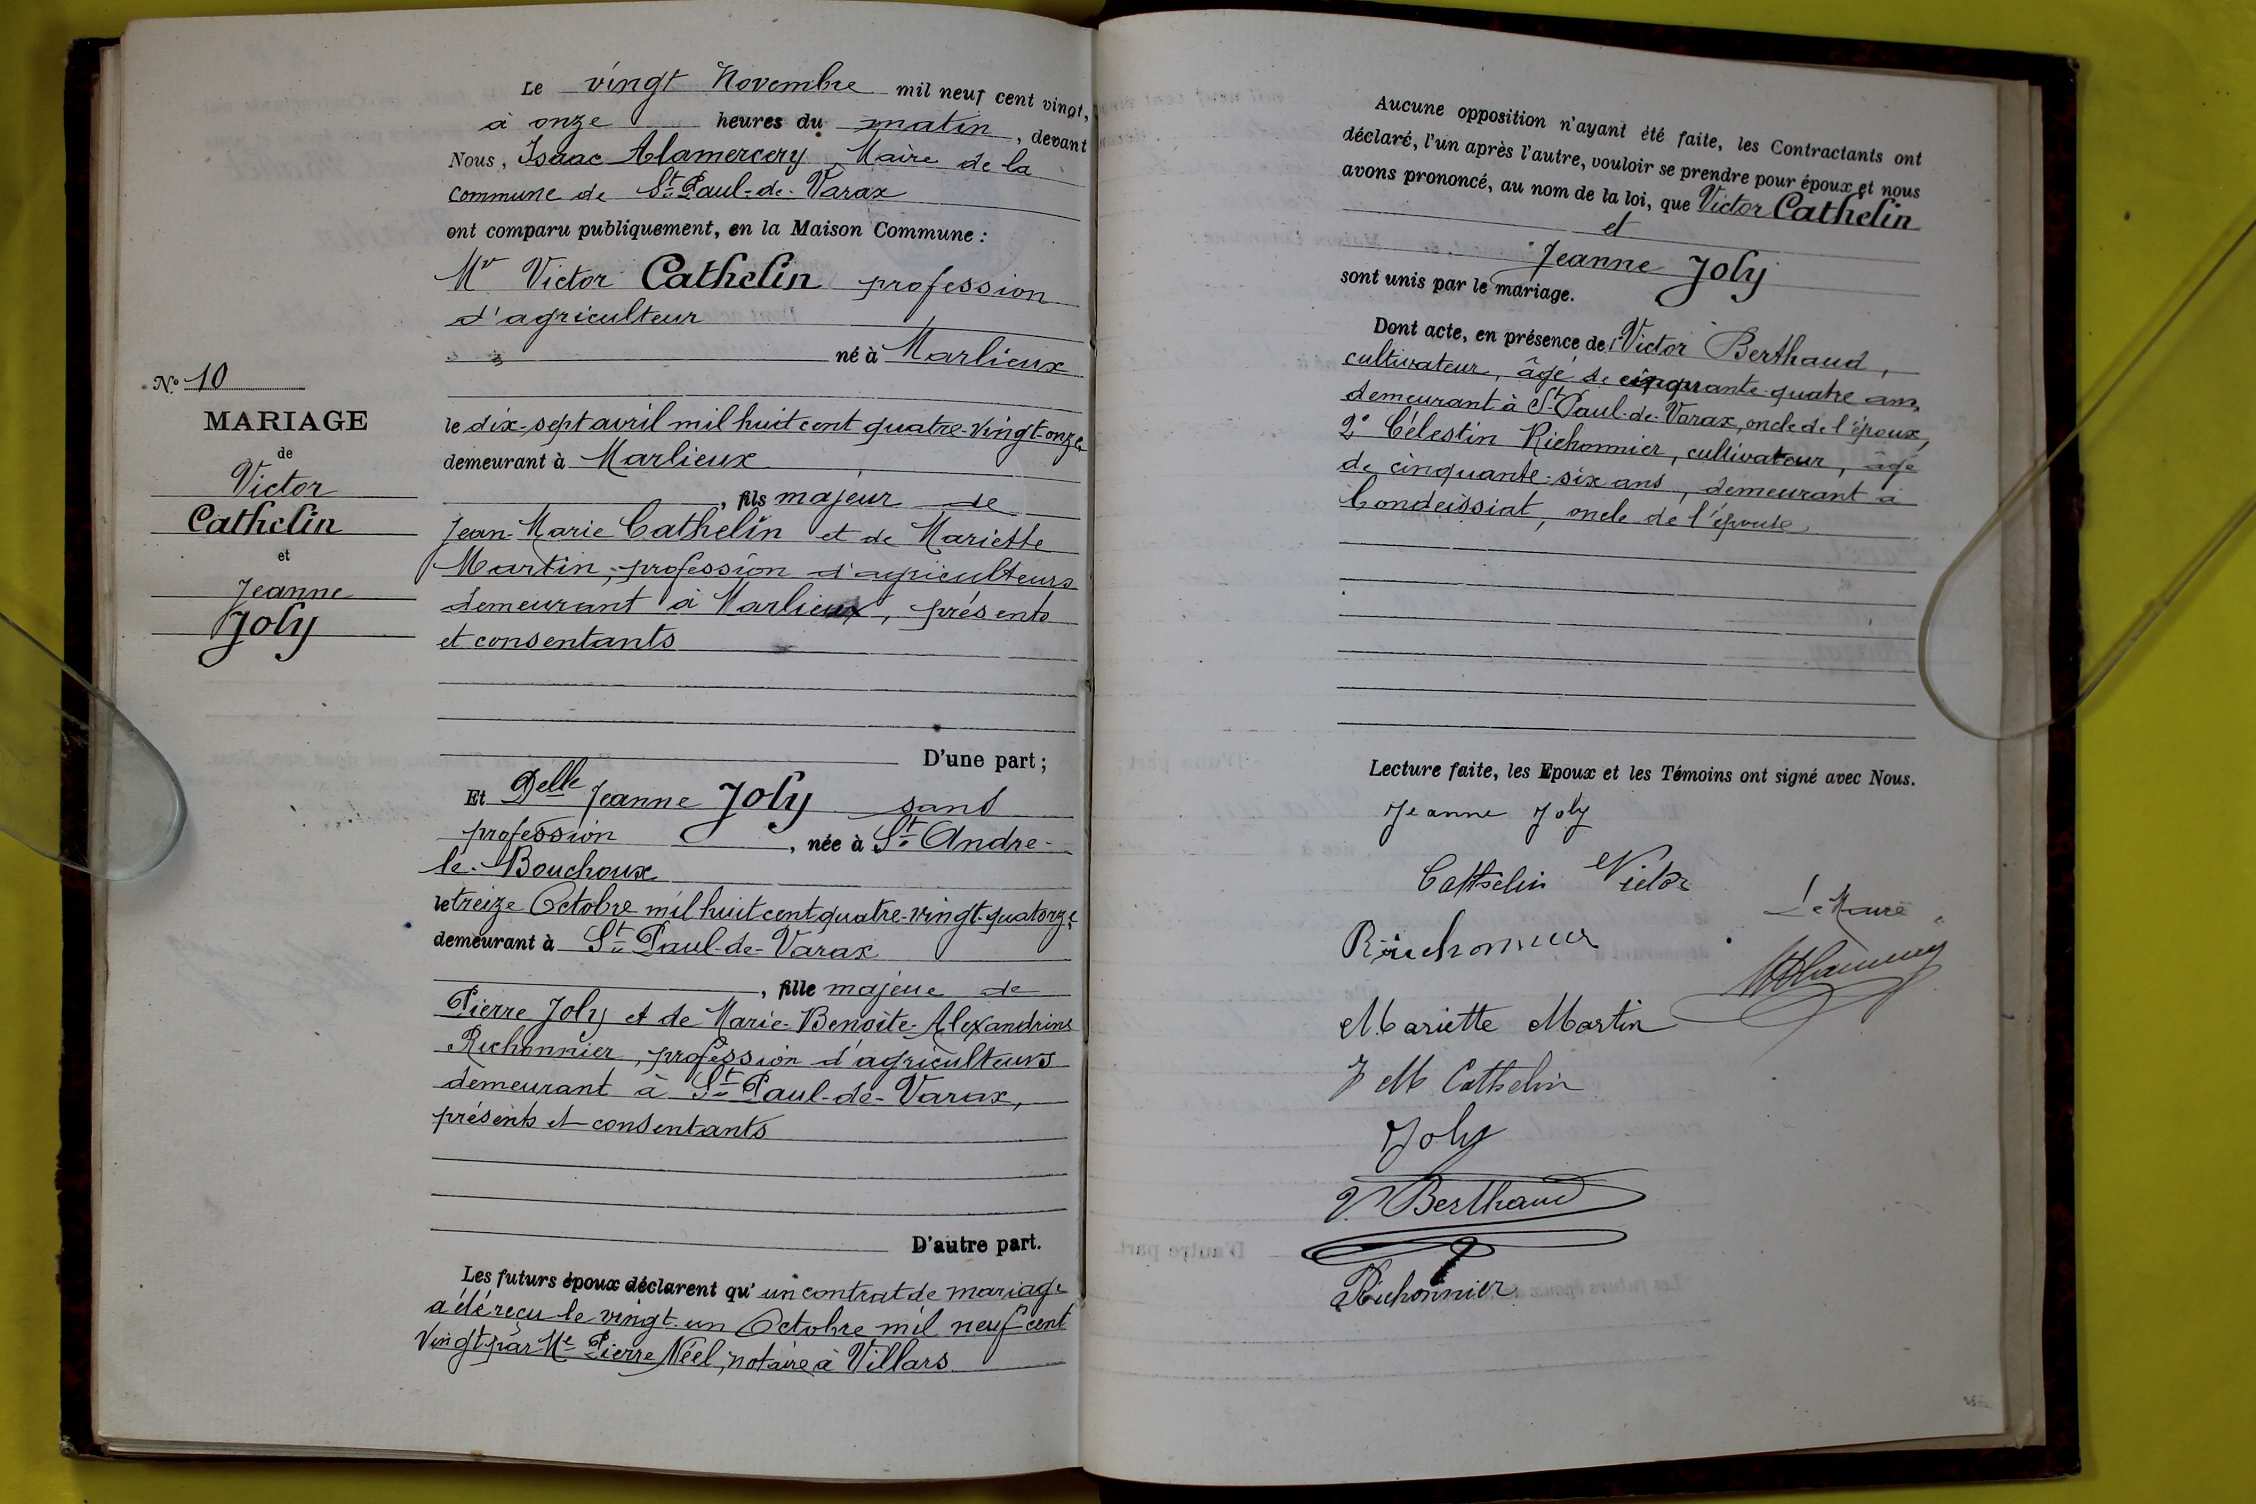 N° 10
MARIAGE
de
Victor
Cathelin
et
Jeanne
Joly
Le vingt Novembre mil neuf cent vingt,
à onze heures du matin, devant
Nous, Isaac Alamercery, Maire de la
commune de St Paul-de-Varax
ont comparu publiquement, en la Maison Commune :
Mr Victor Cathelin profession
d'agriculteur
né à Marlieux
le dix-sept avril mil huit cent quatre-vingt-onze
demeurant à Marlieux
, fils majeur de
Jean-Marie Cathelin et de Mariette
Martin, profession d'agriculteurs
demeurant à Marlieux, présents
et consentants
D'une part ;
Et Delle Jeanne Joly sans
profession, née à St Andre-
le-Bouchoux
le treize Octobre mil huit cent quatre-vingt-quatorze
demeurant à St Paul-de-Varax
, fille majeue de
Pierre Joly et de Marie-Benoite-Alexandrine
Richonnier, profession d'agriculteurs
demeurant à St Paul-de-Varax,
présents et consentants
D'autre part.
Les futurs époux déclarent qu'un contrat de mariage
a été reçu le vingt-un Octobre mil neuf cent
vingt par Me Pierre Néel, notaire à Villars
Aucune opposition n'ayant été faite, les Contractants ont
déclaré, l'un après l'autre, vouloir se prendre pour époux et nous
avons prononcé, au nom de la loi, que Victor Cathelin
et
Jeanne Joly
sont unis par le mariage.
Dont acte, en présence de 1° Victor Berthaud,
cultivateur, âgé de cinquante-quatre ans,
demeurant à St Paul-de-Varax, oncle de l'époux,
2° Célestin Richonnier, cultivateur, âgé
de cinquante-six ans, demeurant à
Condeissiat, oncle de l'épouse
Lecture faite, les Epoux et les Témoins ont signé avec Nous.
Jeanne Joly
Cathelin Victor
Le Maire
Mariette Martin
J M Cathelin
Joly
V. Berthaud
Richonnier